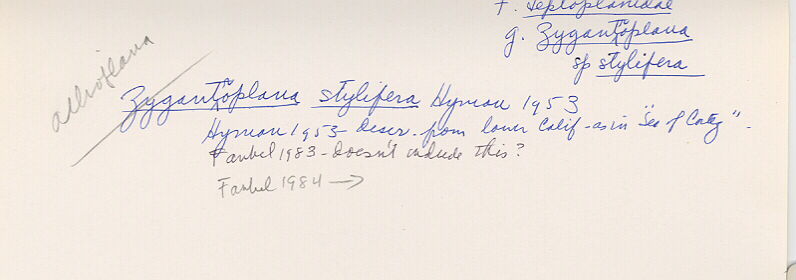 f. Leptoplanidae
g. Zygantroplana
sp stylifera
Zygantroplana stylifera Hyman 1953
Hyman 1953 - descr. from lower Calif - as in "Sea of Cortez".
Faubel 1983 - doesn't include this?
Faubel 1984 →